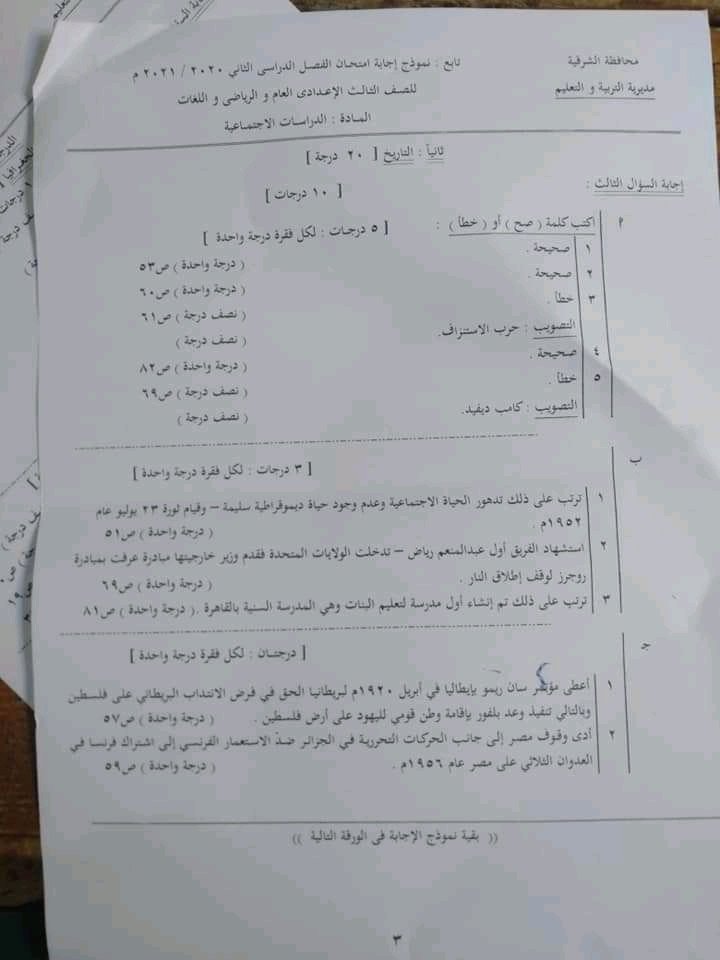 محافظة الشرقية
مديرية التربية و التعليم
تابع : نموذج إجابة امتحان الفصل الدراسى الثاني ٢٠٢٠ / ٢٠٢١ م
للصف الثالث الإعدادى العام و الرياضى و اللغات
المادة : الدراسات الاجتماعية
ثانياً : التاريخ [ ٢٠ درجة ]
إجابة السؤال الثالث :
[ ١٠ درجات ]
٢ اكتب كلمة ( صح ) أو ( خطأ ) : [ ٥ درجات : لكل فقرة درجة واحدة ]
١ صحيحة . ( درجة واحدة ) ص٥٣
٢ صحيحة . ( درجة واحدة ) ص٦٠
٣ خطأ . ( نصف درجة ) ص٦١
التصويب : حرب الاستنزاف. ( نصف درجة )
٤ صحيحة . ( درجة واحدة ) ص٨٢
٥ خطأ . ( نصف درجة ) ص٦٩
التصويب : كامب ديفيد. ( نصف درجة )
ب [ ٣ درجات : لكل فقرة درجة واحدة ]
١ ترتب على ذلك تدهور الحياة الاجتماعية وعدم وجود حياة ديموقراطية سليمة – وقيام ثورة ٢٣ يوليو عام
١٩٥٢م . ( درجة واحدة ) ص٥١
٢ استشهاد الفريق أول عبدالمنعم رياض – تدخلت الولايات المتحدة فقدم وزير خارجيتها مبادرة عرفت بمبادرة
روجرز لوقف إطلاق النار . ( درجة واحدة ) ص٦٩
٣ ترتب على ذلك تم إنشاء أول مدرسة لتعليم البنات وهي المدرسة السنية بالقاهرة . ( درجة واحدة ) ص٨١
جـ [ درجتان : لكل فقرة درجة واحدة ]
١ أعطى مؤتمر سان ريمو بإيطاليا في أبريل ١٩٢٠م لبريطانيا الحق في فرض الانتداب البريطاني على فلسطين
وبالتالي تنفيذ وعد بلفور بإقامة وطن قومي لليهود على أرض فلسطين . ( درجة واحدة ) ص٥٧
٢ أدى وقوف مصر إلى جانب الحركات التحررية في الجزائر ضدّ الاستعمار الفرنسي إلى اشتراك فرنسا في
العدوان الثلاثي على مصر عام ١٩٥٦م . ( درجة واحدة ) ص٥٩
(( بقية نموذج الإجابة فى الورقة التالية ))
٣